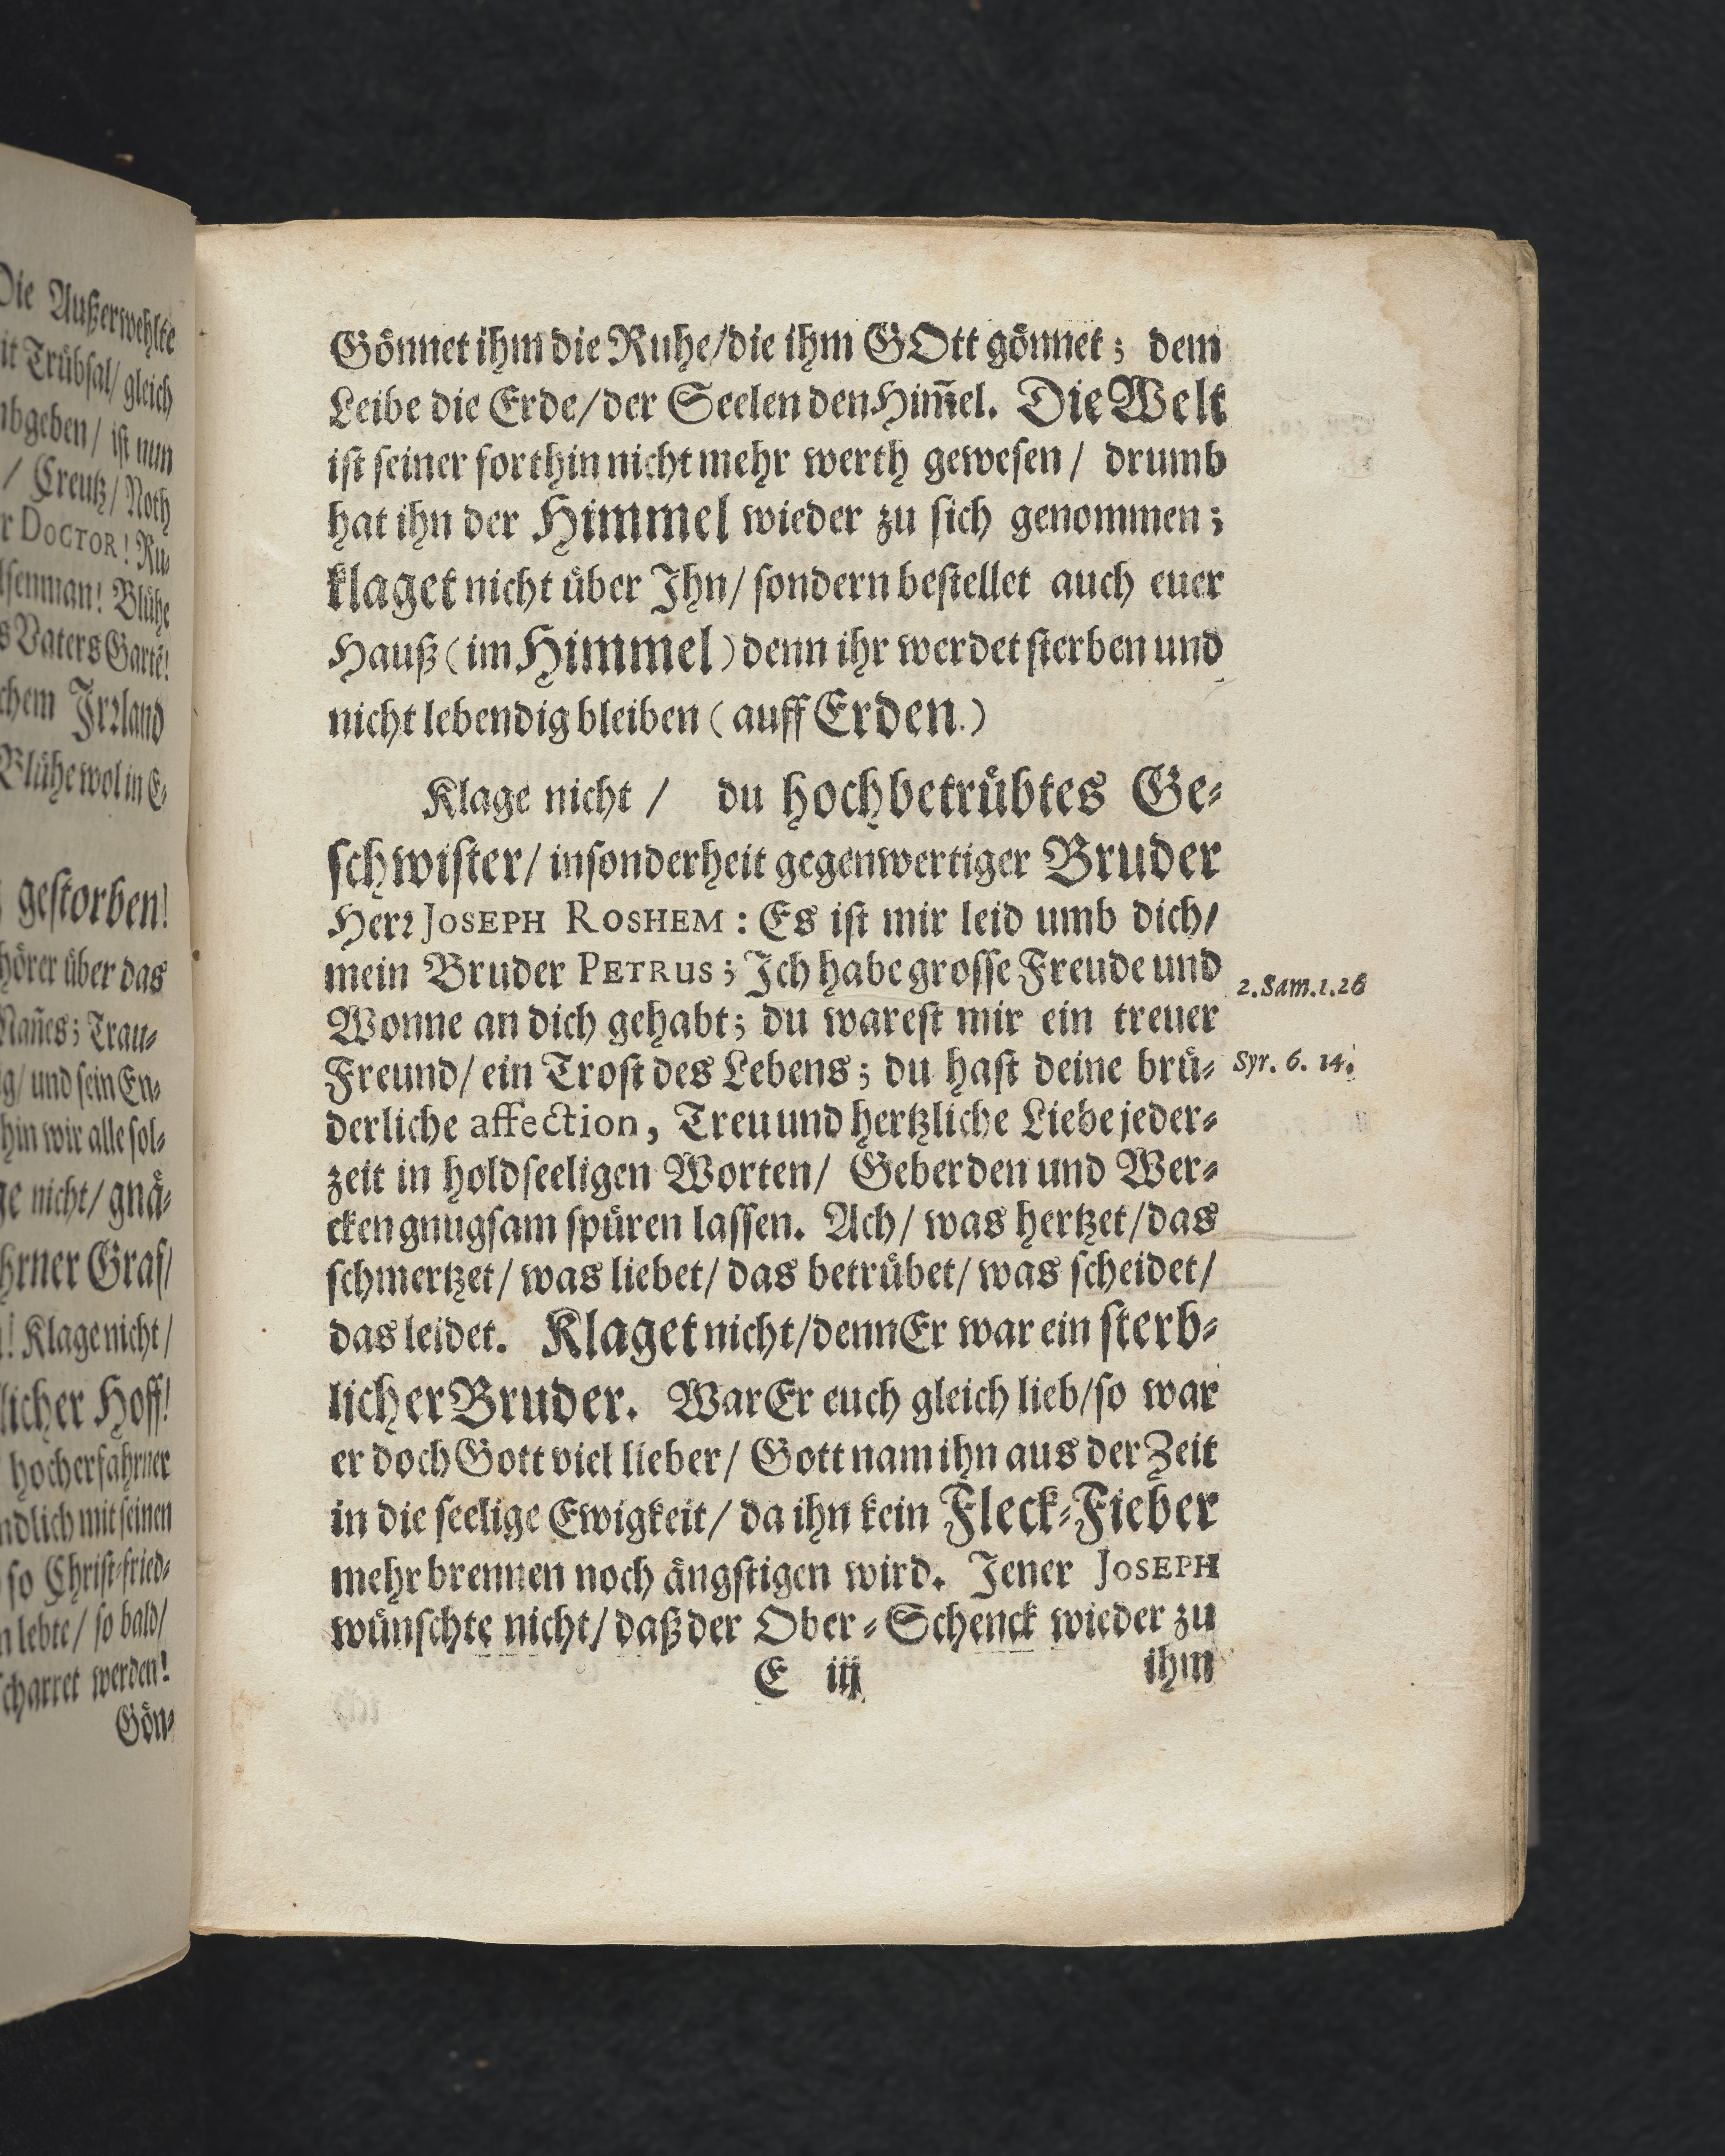 Die Außerwehlte
it Trübsal/ gleich
mbgeben/ ist nun
/ Creutz/ Noth
r DOCTOR! Ru⸗
lsenman! Blühe
s Vaters Gartē!
chem Irꝛland
Blühe wol in E⸗
gestorben!
hörer über das
Mañes; Trau⸗
ig/ und sein En⸗
hin wir alle sol⸗
ge nicht/ gnä⸗
hrner Graf/
! Klage nicht/
licher Hoff!
hocherfahrner
ndlich mit seinen
so Christ⸗fried⸗
n lebte/ so bald/
scharret werden!
Gön⸗
Gönnet ihm die Ruhe/die ihm GOtt gönnet; dem
Leibe die Erde/der Seelen den Him̃el. Die Welt
ist seiner forthin nicht mehr werth gewesen/ drumb
hat ihn der Himmel wieder zu sich genommen;
klaget nicht über Ihn/ sondern bestellet auch euer
Hauß (im Himmel) denn ihr werdet sterben und
nicht lebendig bleiben (auff Erden.)
Klage nicht/ du hochbetrübtes Ge⸗
schwister/ insonderheit gegenwertiger Bruder
Herꝛ JOSEPH ROSHEM: Es ist mir leid umb dich/
mein Bruder PETRUS; Ich habe grosse Freude und
2. Sam. 1. 26
Wonne an dich gehabt; du warest mir ein treuer
Freund/ ein Trost des Lebens; du hast deine brü⸗
Syr. 6. 14.
derliche affection, Treu und hertzliche Liebe jeder⸗
zeit in holdseeligen Worten/ Geberden und Wer⸗
cken gnugsam spüren lassen. Ach/ was hertzet/das
schmertzet/ was liebet/ das betrübet/ was scheidet/
das leidet. Klaget nicht/denn Er war ein sterb⸗
licher Bruder. War Er euch gleich lieb/so war
er doch Gott viel lieber/ Gott nam ihn aus der Zeit
in die seelige Ewigkeit/ da ihn kein Fleck⸗Fieber
mehr brennen noch ängstigen wird. Jener JOSEPH
wünschte nicht/ daß der Ober⸗Schenck wieder zu
E iij ihm